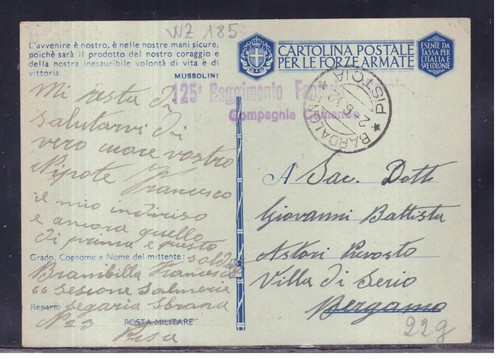 WZ 185
L'avvenire è nostro, è nelle nostre mani sicure,
poichè sarà il prodotto del nostro coraggio e
della nostra inesauribile volontà di vita e di
vittoria
MUSSOLINI
CARTOLINA POSTALE
PER LE FORZE ARMATE
ESENTE DA
TASSA PER
L'ITALIA E
125° Reggimento
Compagnia
BARDALONE
PISTOIA
Mi resta di
salutarvi di
vero cuore vostro
Nipote Francesco
il mio indiriso
è ancora quello
di prima e questo
Grado, Cognome e Nome del mittente: Soldato
Brambilla Francesco
66 Sesione Salmerie
Reparto Segaria Sbrana
N° 23
POSTA MILITARE
Pisa
A Sac. Dott
Giovanni Battista
Astori Prevosto
Villa di Serio
Bergamo
22g